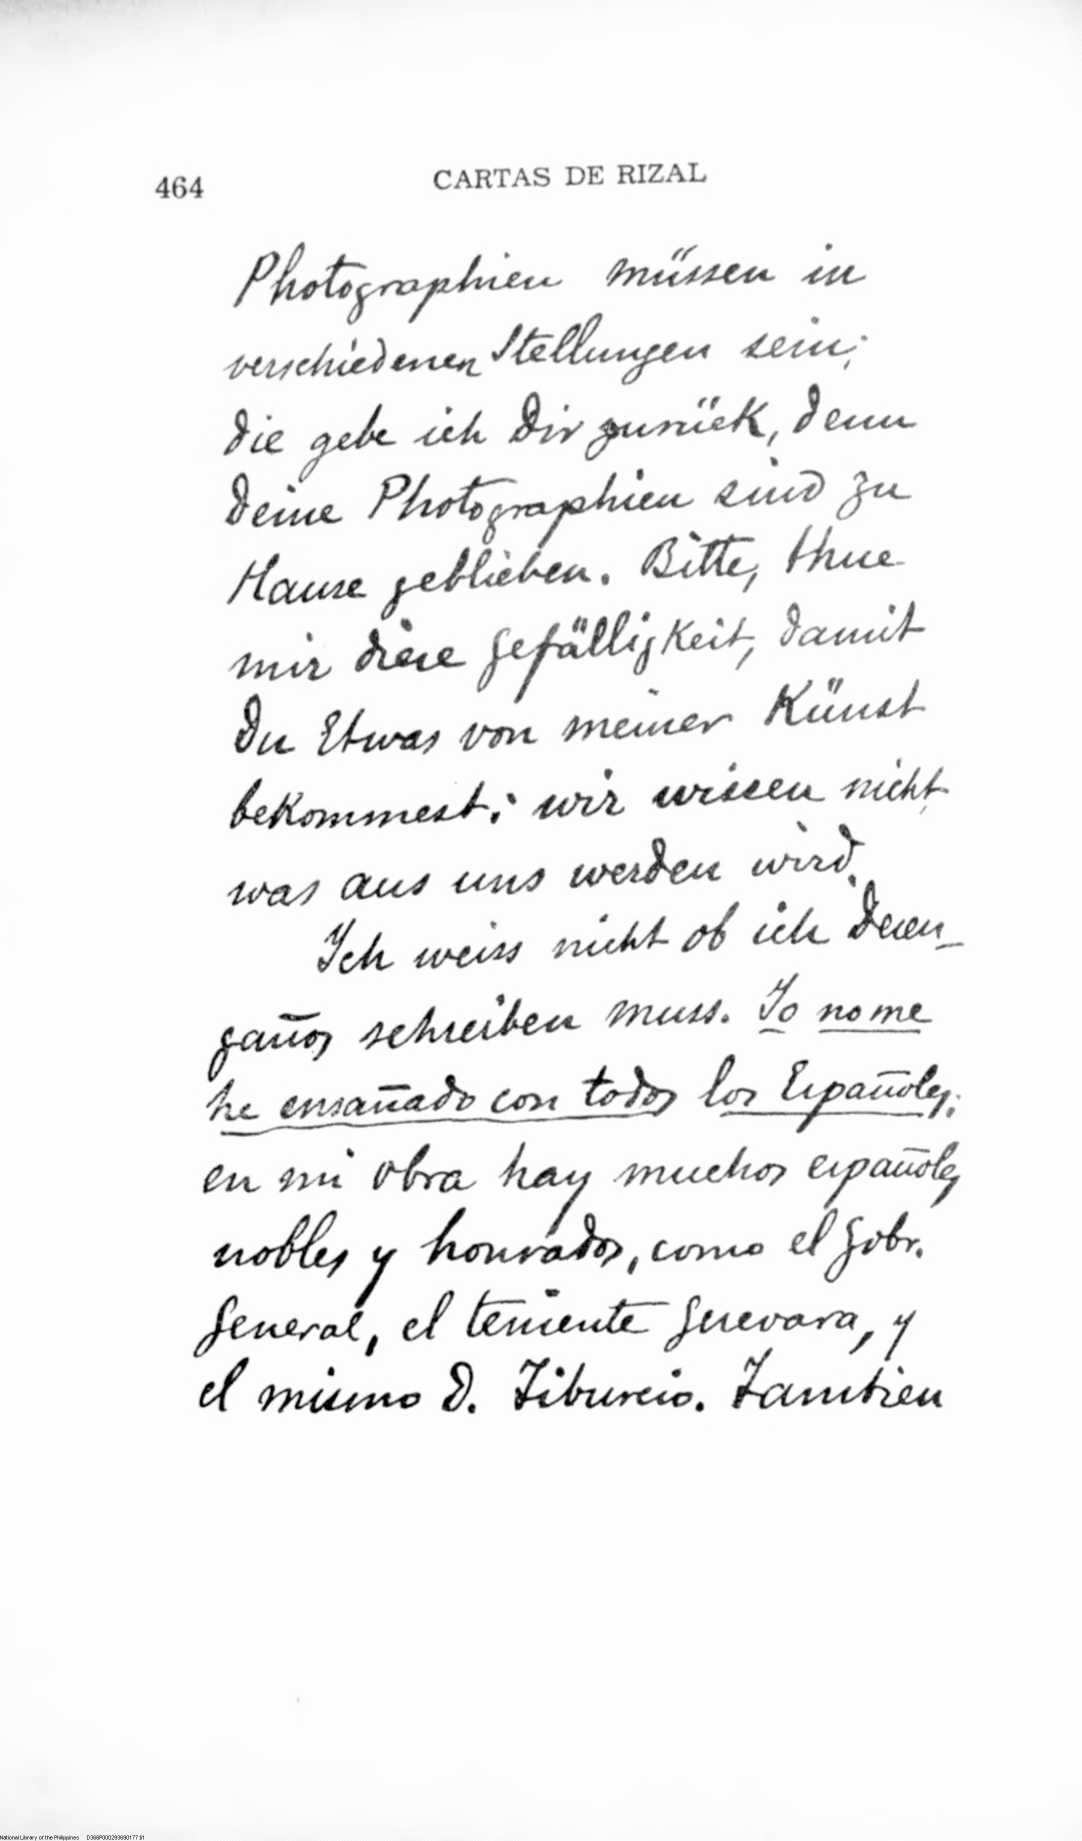 464
CARTAS DE RIZAL
Photographien müssen in
verschiedenen Stellungen sein;
die gebe ich Dir zurück, denn
deine Photographien sind zu
Hause geblieben. Bitte, thue
mir diese Gefälligkeit, damit
Du Etwas von meiner Künst
bekommest; wir wissen nicht
was aus uns werden wird.
Ich weiss nicht ob ich Desen-
gaños schreiben muss. Yo no me
he ensañado con todos los Españoles;
en mi obra hay muchos españoles
nobles y honrados, como el Gobr.
General, el teniente Guevara, y
el mismo D. Tiburcio. Tambien
National Library of the Philippines